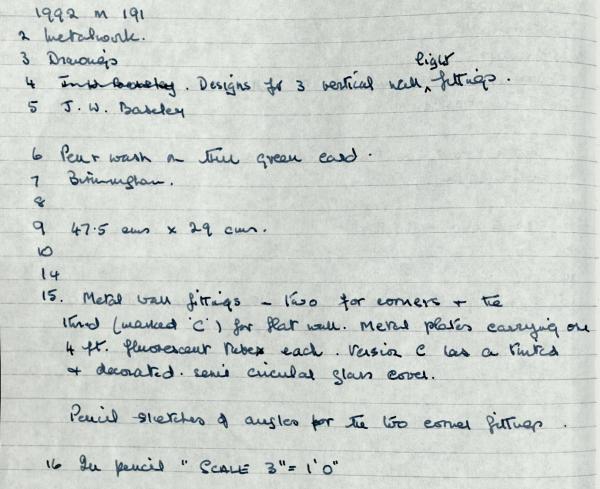 1992 M 191
2 Metalwork.
3 Drawings
light
4 J. W. Baseley. Designs for 3 vertical wall ^ fittings.
5 J. W. Baseley
6 Pen & wash on thin green card.
7 Birmingham.
8
9 47.5 cms x 29 cms.
10
14
15. Metal wall fittings – two for corners & the
third (marked 'C') for flat wall. Metal plates carrying one
4 ft. fluorescent tube each. Version C has a tinted
& decorated semi circular glass cover.
Pencil sketches of angles for the two corner fittings.
16 In pencil " SCALE 3" = 1'0"